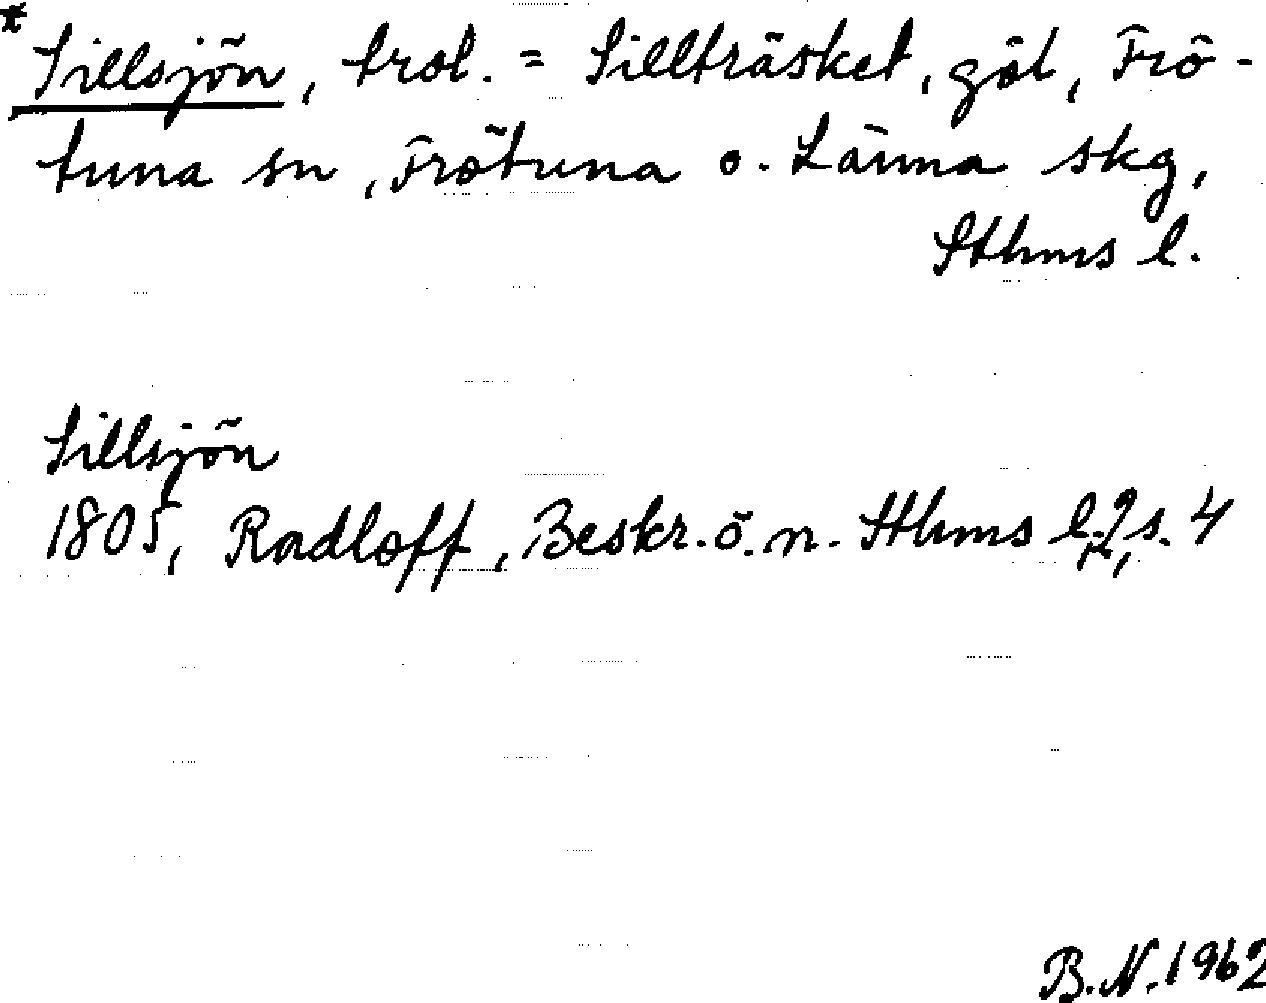 *Sillsjön, trol. = Sillträsket, göl, Frö-
tuna sn, Frötuna o. Länna skg,
Sthms l.
Sillsjön
1805, Radloff, Beskr. ö. n. Sthms l. 2, s. 4
B. N. 1962